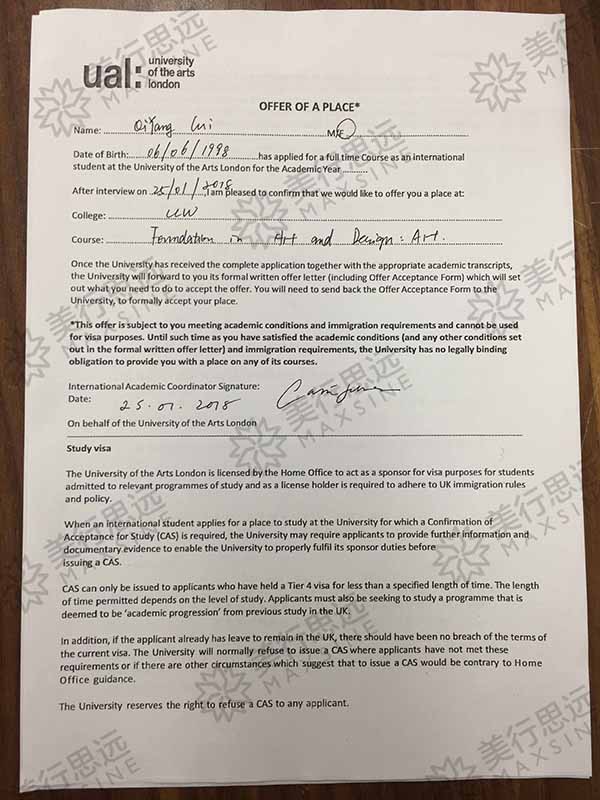 ual: university
of the arts
london
OFFER OF A PLACE*
Name: QiYang M/F
Date of Birth: 06/06/1998 has applied for a full time Course as an international
student at the University of the Arts London for the Academic Year
After interview on 25/01/2018, I am pleased to confirm that we would like to offer you a place at:
College:
Course: Foundation in Art and Design: Art.
Once the University has received the complete application together with the appropriate academic transcripts,
the University will forward to you its formal written offer letter (including Offer Acceptance Form) which will set
out what you need to do to accept the offer. You will need to send back the Offer Acceptance Form to the
University, to formally accept your place.
*This offer is subject to you meeting academic conditions and immigration requirements and cannot be used
for visa purposes. Until such time as you have satisfied the academic conditions (and any other conditions set
out in the formal written offer letter) and immigration requirements, the University has no legally binding
obligation to provide you with a place on any of its courses.
International Academic Coordinator Signature:
Date: 25.01.2018
On behalf of the University of the Arts London
Study visa
The University of the Arts London is licensed by the Home Office to act as a sponsor for visa purposes for students
admitted to relevant programmes of study and as a license holder is required to adhere to UK immigration rules
and policy.
When an international student applies for a place to study at the University for which a Confirmation of
Acceptance for Study (CAS) is required, the University may require applicants to provide further information and
documentary evidence to enable the University to properly fulfil its sponsor duties before
issuing a CAS.
CAS can only be issued to applicants who have held a Tier 4 visa for less than a specified length of time. The length
of time permitted depends on the level of study. Applicants must also be seeking to study a programme that is
deemed to be 'academic progression' from previous study in the UK.
In addition, if the applicant already has leave to remain in the UK, there should have been no breach of the terms of
the current visa. The University will normally refuse to issue a CAS where applicants have not met these
requirements or if there are other circumstances which suggest that to issue a CAS would be contrary to Home
Office guidance.
The University reserves the right to refuse a CAS to any applicant.
美行思远
MAXSINE